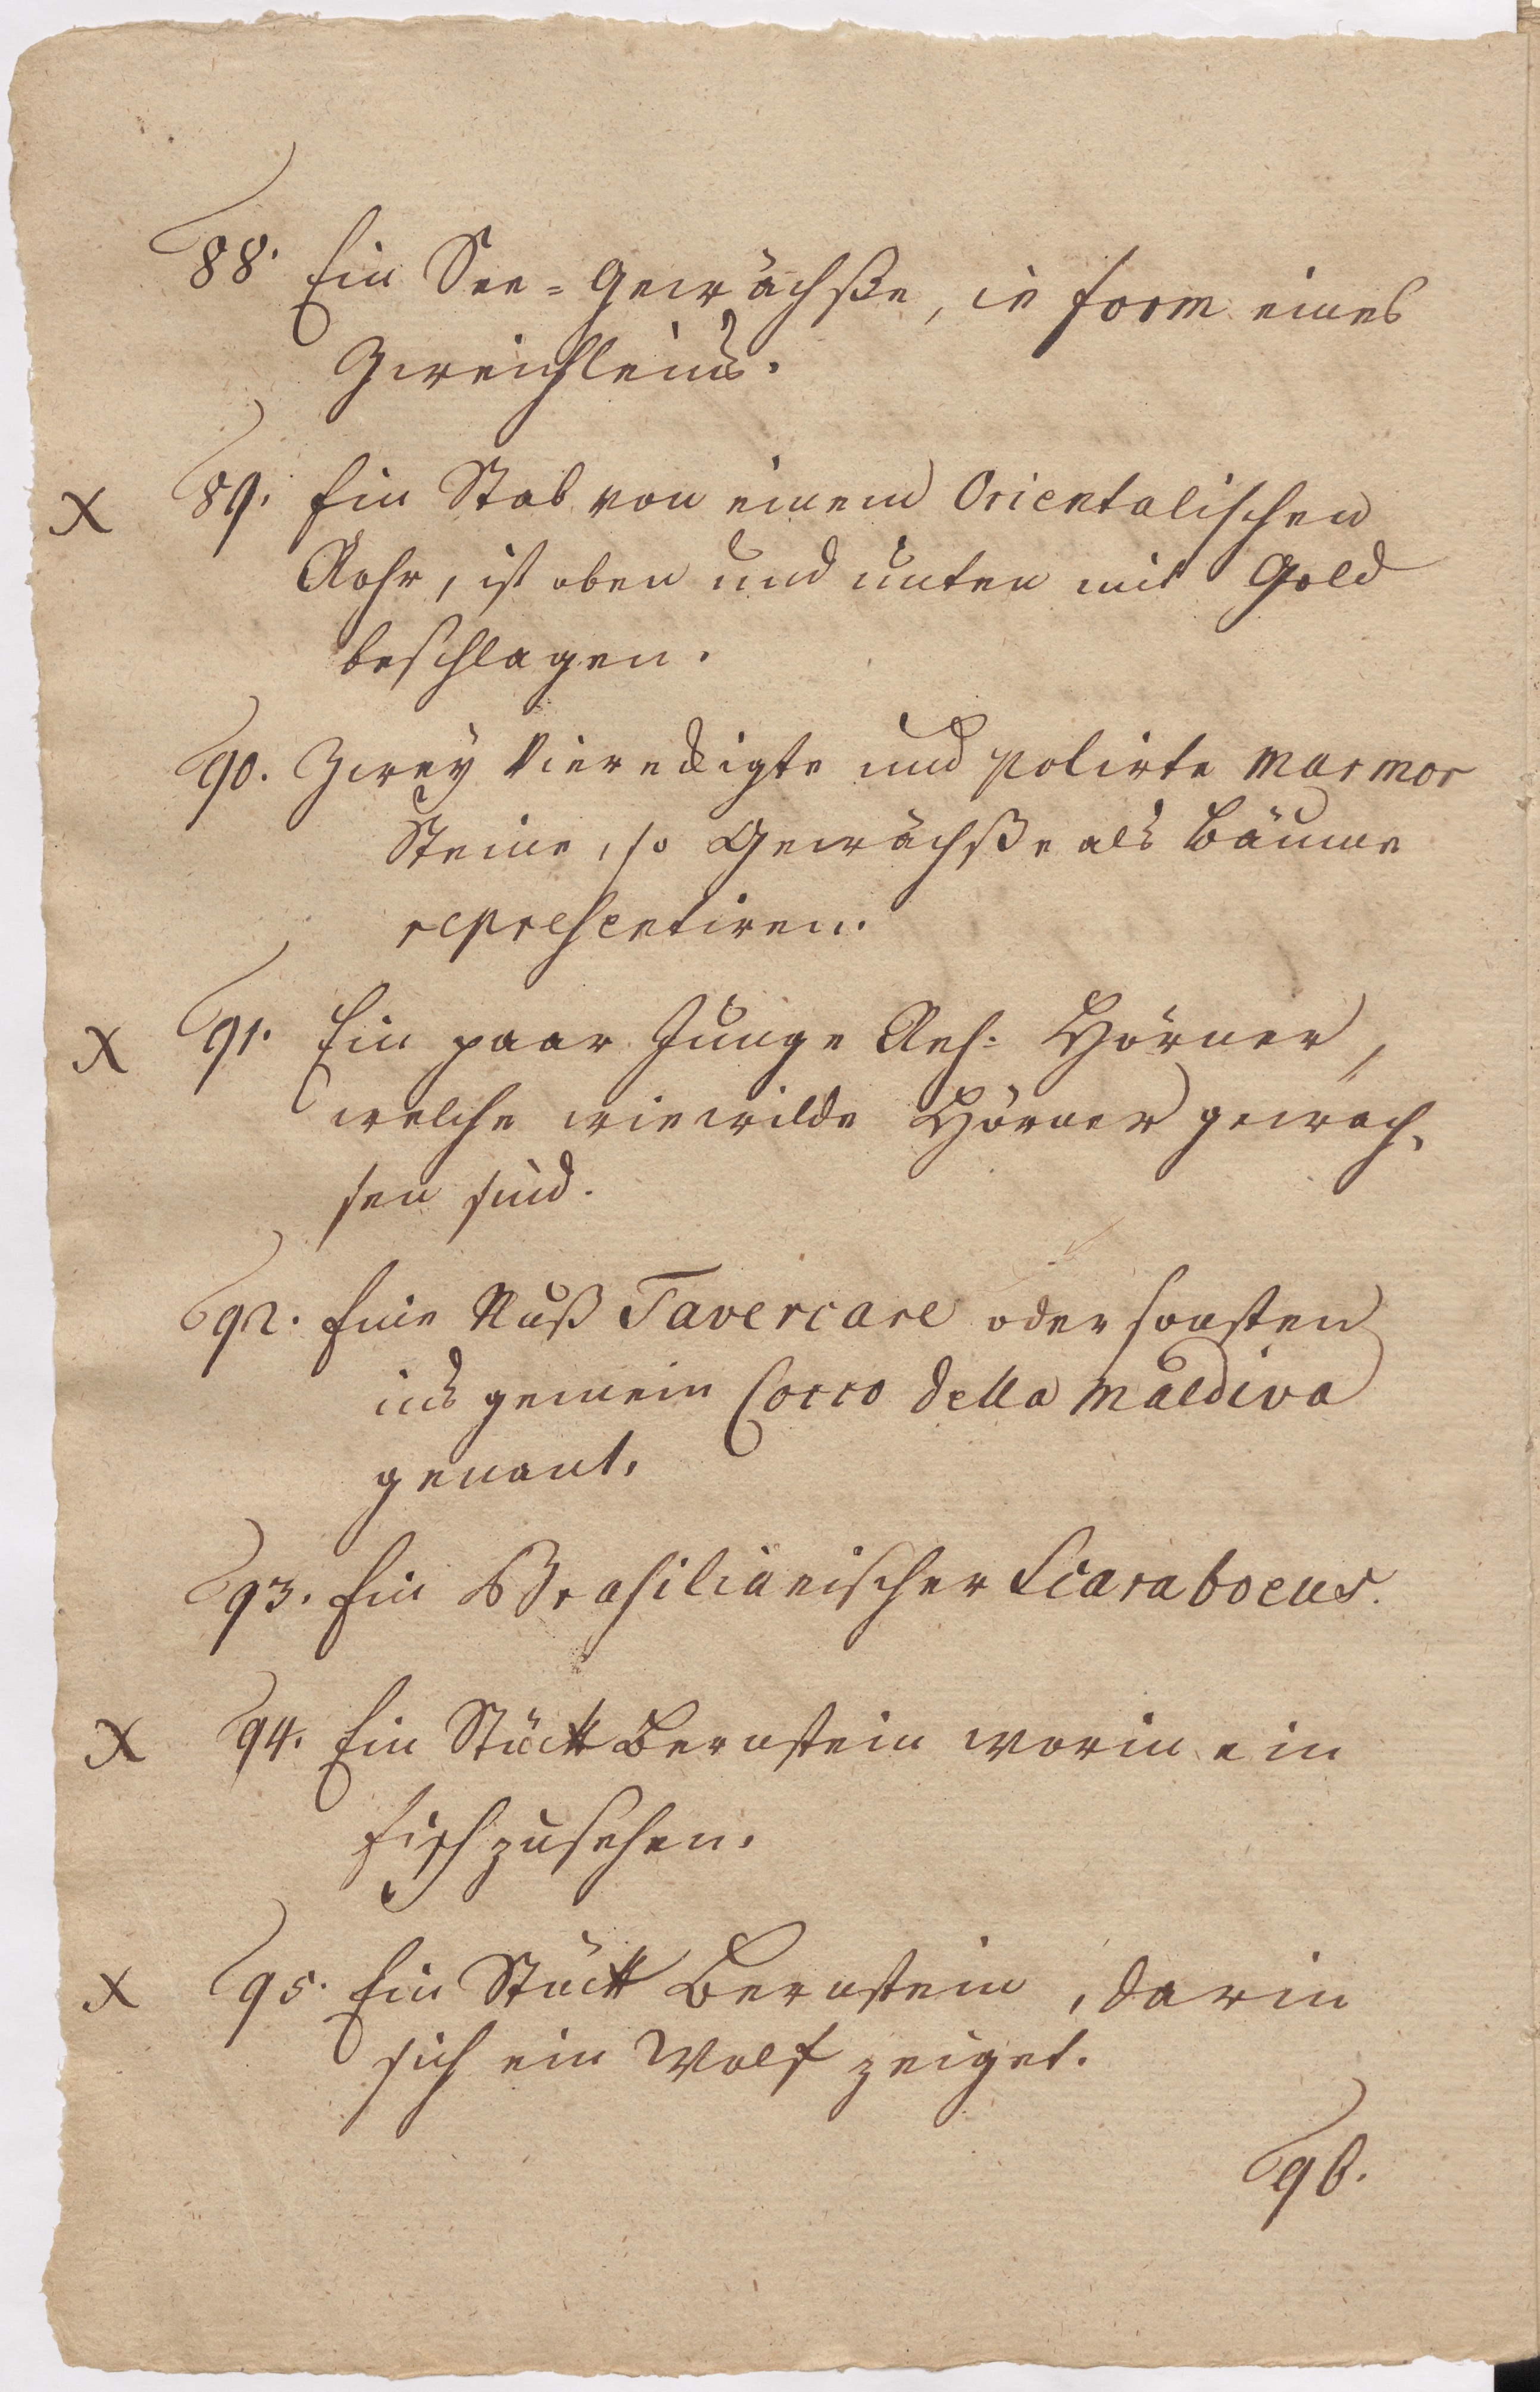 88. Ein See=Gewächße, in form eines
Zweichleins.
X 89. Ein Stab von einem Orientalischen
Rohr, ist oben und unten mit Gold
beschlagen.
90. Zweÿ Viereckigte und polirte Marmor
Steine, so Gewächße als Bäume
representiren.
X 91. Ein paar Junge Reh. Hörner,
welche wie wilde Hörner gewach,
sen sind.
92. Eine Nuß Tavercare oder sonsten
ins gemein Cocco della Maldiva
genant.
93. Ein Brasilianischer Scaraboeus.
X 94. Ein Stück Bernstein worin ein
Fisch zusehen.
X 95. Ein Stück Bernstein, darin
sich ein Wolf zeiget.
96.